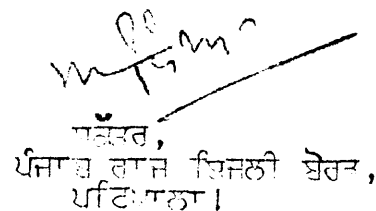 ਸਕੱਤਰ,
ਪੰਜਾਬ ਰਾਜ ਬਿਜਲੀ ਬੋਰਡ,
ਪਟਿਆਲਾ।